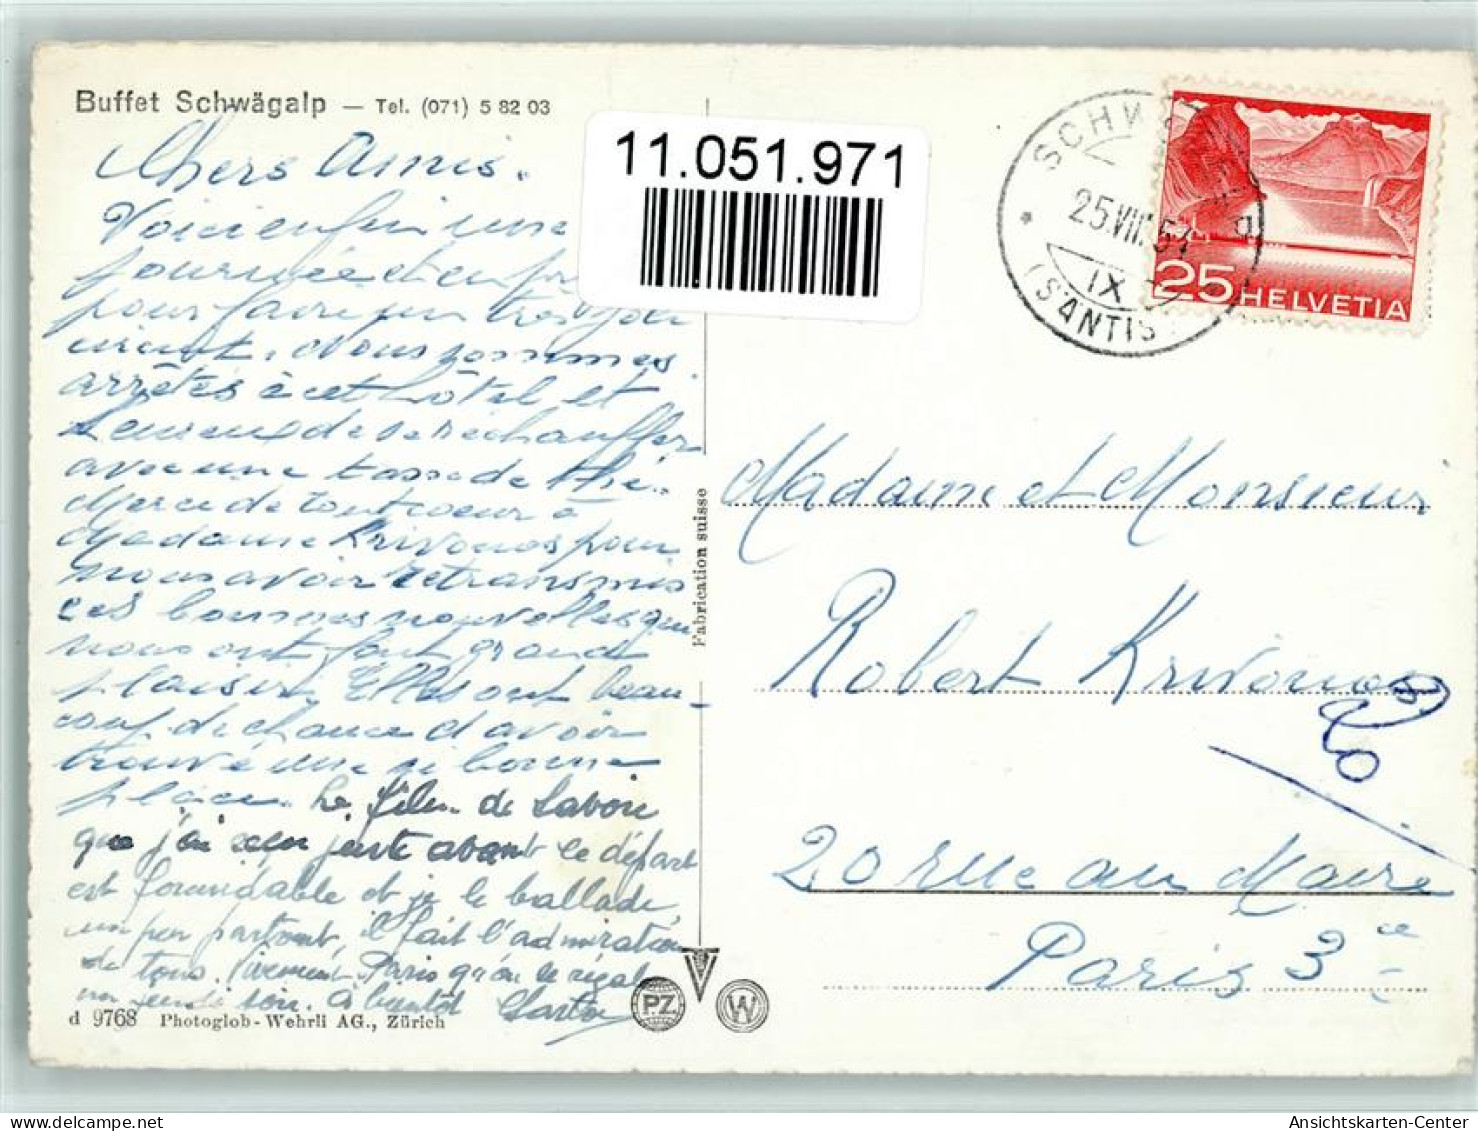 Buffet Schwägalp — Tel. (071) 5 82 03
Chers Amis.
Voici enfin une
journée et en
pour faire un très joli
circuit. Nous sommes
arrêtés à cet hôtel et
de se réchauffer
avec une tasse de thé.
Merci de tout coeur à
Madame Krivonos pour
nous avoir retransmis
ces bonnes nouvelles qui
nous ont fait grand
plaisir. Elles ont beau-
coup de chance d'avoir
trouvé une si bonne
place. Le film de Savoie
que j'ai reçu juste avant le départ
est formidable et je le ballade
un peu partout, il fait l'admiration
de tous. Vivement Paris qu'on le régale
un soir. A bientôt
d 9768 Photoglob-Wehrli AG., Zürich
11.051.971
Fabrication suisse
PZ
W
SCHWÄGALP
25.VII.54
IX
(SÄNTIS)
25 HELVETIA
Madame et Monsieur
Robert Krivonos
20
20 rue au Maire
Paris 3e
Ansichtskarten-Center